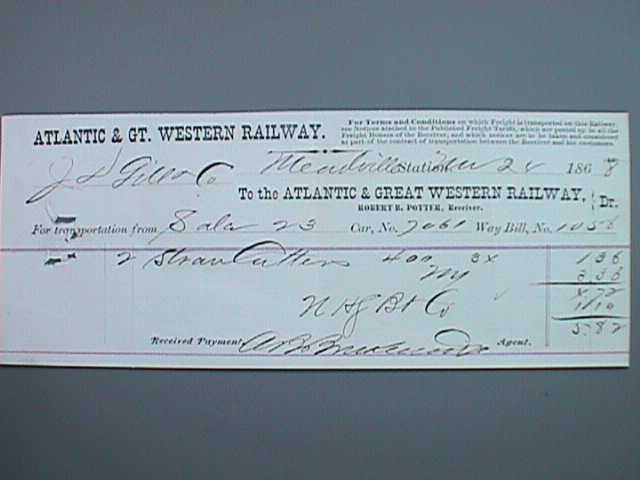 ATLANTIC & GT. WESTERN RAILWAY.
For Terms and Conditions on which Freight is transported on this Railway
see Notices attached to the Published Freight Tariffs, which are posted up in all the
Freight Houses of the Receiver, and which notices are to be taken and considered
as part of the contract of transportation between the Receiver and his customers.
Meadville Station, 24 1868
J D Gill & Co
To the ATLANTIC & GREAT WESTERN RAILWAY, Dr.
ROBERT B. POTTER, Receiver.
For transportation from Sala 23 Car, No. 7061 Way Bill, No. 1058
2 Straw Cutters 400 136
336
4 72
1 10
5.82
Received Payment, Agent.